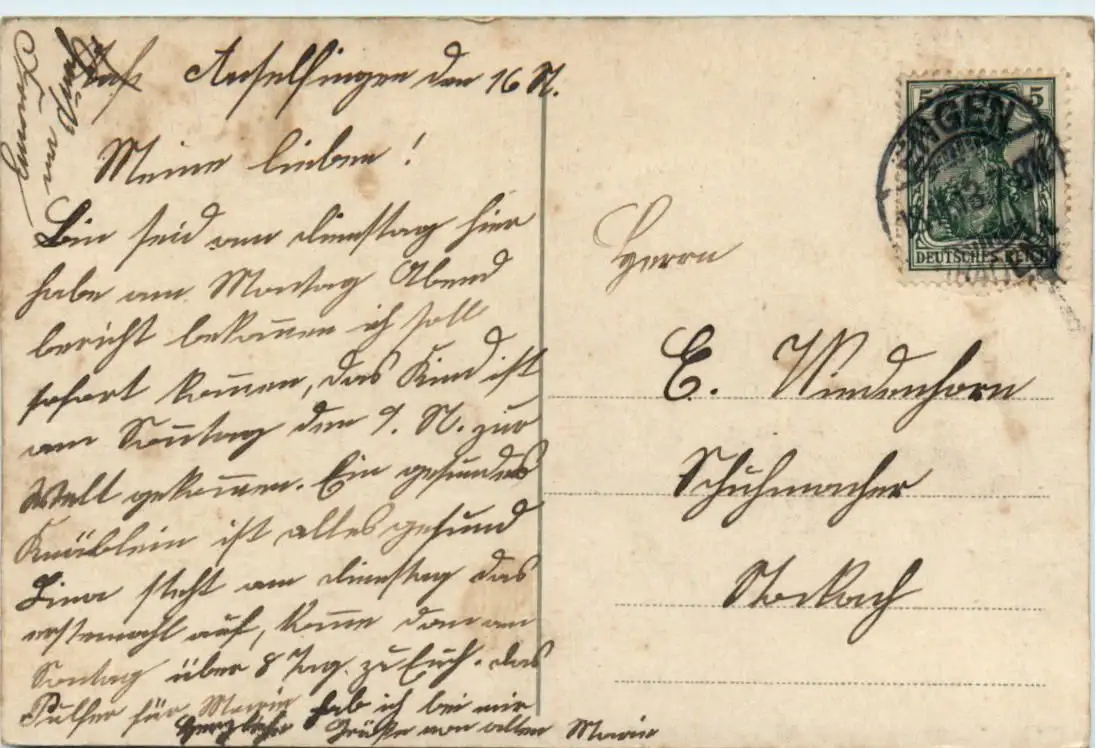 Anselfingen den 16 N.
Meine lieben!
Bin seid am Dienstag hier
habe am Montag Abend
bericht bekommen ich soll
sofort kommen, das Kind ist
am Sonntag den 9. N. zur
Welt gekommen. Ein gesundes
Knäblein ist alles gesund
Lina steht am Dienstag das
erstemahl auf, komme dan am
Sontag über 8 Tag. zu Euch. das
Pulfer für Marie hab ich bei mir
Herzliche Grüße von allen Marie
Herrn
E. Wiedenhorn
Schuhmacher
Stockach
5 5
DEUTSCHES REICH